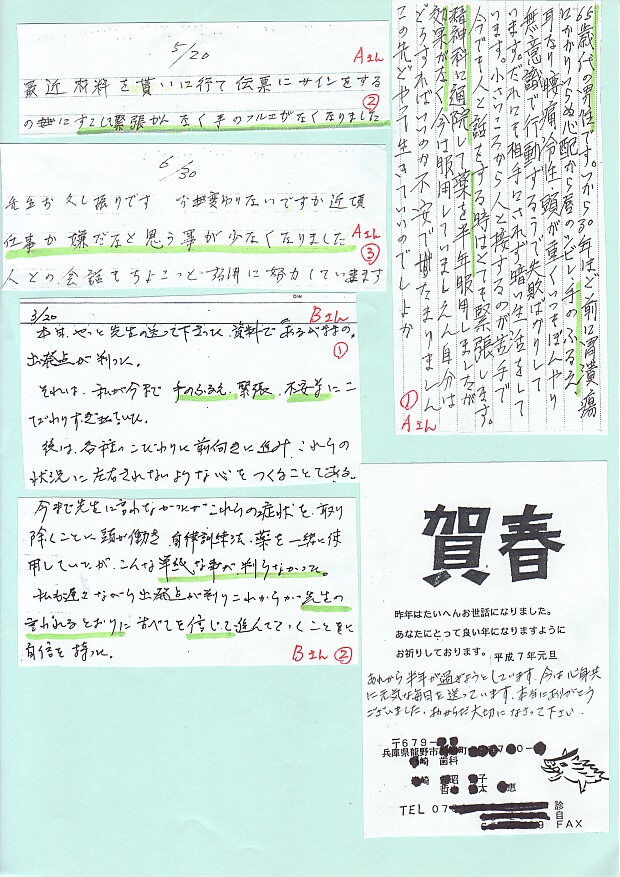 5/20 Aさん
最近材料を貰いに行て伝票にサインをする
②
の無にすこしも緊張がなく手のフルエがなくなりました
6/30
先生お久し振りです お変わりないですか近頃
Aさん
仕事が嫌だなと思う事が少なくなりました
③
人との会話もちょこっとずつ出来る用に努力しています
3/20 Bさん
本日、やっと先生の送って下さった資料で“あるがままの。
①
出発点が判った。
それは、私が今まで 手のふるえ、緊張、不安等にこ
だわりすぎていた。
後は、各種のこだわりに前向きに進み、これらの
状況に左右されないような心をつくることである。
今まで先生に言われながらこれらの症状を取り
除くことに頭が働き、自律訓練法、薬を一緒に使
用していたが、こんな単純な事が判らなかった。
私も遅ればせながら出発点が判りこれから先生の
言われるとおりにすべてを信じて進んでいくことに
自信を持った。
Bさん ②
65歳代の男性です。今から30年ほど前に胃潰瘍
にかかりいらい心配から唇のシビレ、手のふるえ
耳なり腰痛、冷性、頭が重くいつもぼんやり
無意識で行動するので失敗ばかりして
います。だれにも相手にされず暗い生活をして
います。小さいころから人と接するのが苦手で
今でも人と話をする時はとても緊張します。
精神科に通院して薬を半年服用しましたが
効果がなく今は服用していません。自分は
どうすればいいのか不安で堪たまりません
この先どやって生きていいのでしょか
① Aさん
賀春
昨年はたいへんお世話になりました。
あなたにとって良い年になりますように
お祈りしております。 平成7年元旦
あれから半年が過ぎようとしています。今は心身共
に元気な毎日を送っています。本当にありがとう
ございました。お体大切になさって下さい。
〒679-
兵庫県龍野市 町 0-
崎 歯科
崎 昭 子
哲 太 恵
TEL 07 診
自
9 FAX